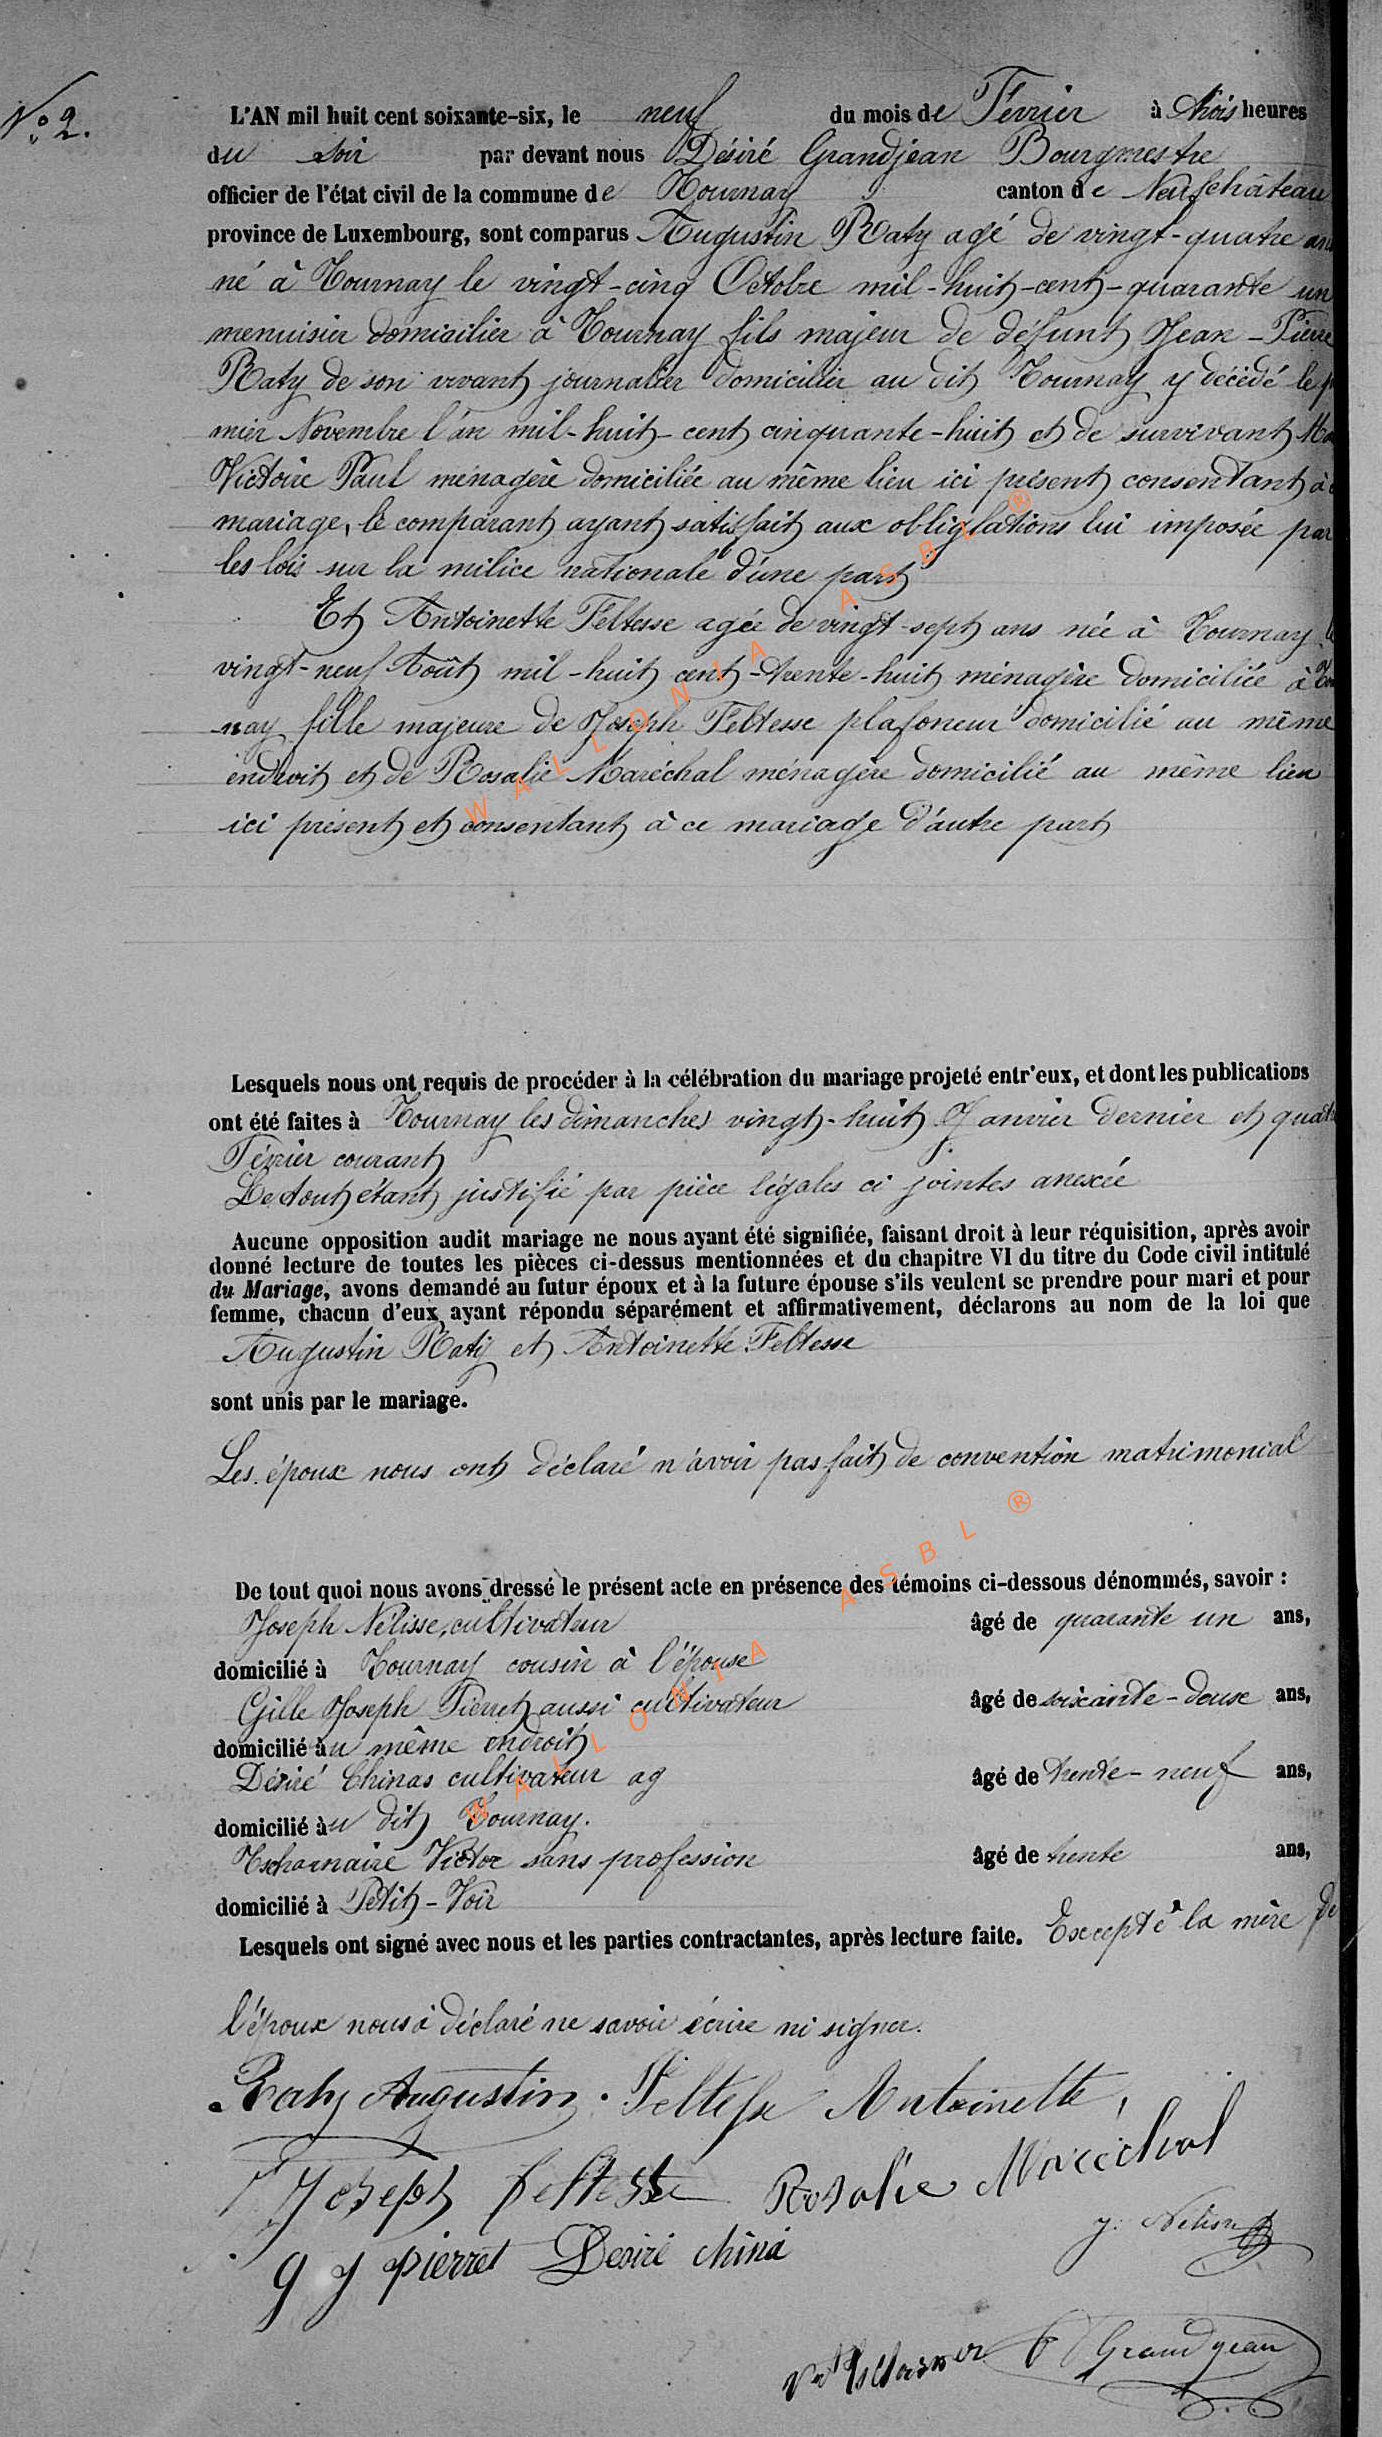 N.o 2.
L'AN mil huit cent soixante-six, le neuf du mois de Février à trois heures
du soir par devant nous Désiré Grandjean Bourgmestre
officier de l'état civil de la commune de Tournay canton de Neufchâteau
province de Luxembourg, sont comparus Augustin Raty agé de vingt-quatre ans
né à Tournay le vingt-cinq Octobre mil-huit-cent-quarante un
menuisier domicilier à Tournay fils majeur de défunt Jean-Pierre
Raty de son vivant journalier domicilier au dit Tournay y décédé le
mier Novembre l'an mil-huit-cent cinquante-huit et de survivant
Victoire Paul ménagère domiciliée au même lieu ici présent consentant à
mariage, le comparant ayant satisfait aux obligations lui imposée par
les lois sur la milice nationale d'une part
Et Antoinette Feltesse agée de vingt-sept ans née à Tournay
vingt-neuf Août mil-huit cent-trente-huit ménagère domiciliée à
nay fille majeure de Joseph Feltesse plafoneur domicilié au même
endroit et de Rosalie Maréchal ménagère domicilié au même lieu
ici présent et consentant à ce mariage d'autre part
Lesquels nous ont requis de procéder à la célébration du mariage projeté entr'eux, et dont les publications
ont été faites à Tournay les dimanches vingt-huit Janvier dernier et
Février courant
Le tout étant justifié par pièce légales ci jointes anexée
Aucune opposition audit mariage ne nous ayant été signifiée, faisant droit à leur réquisition, après avoir
donné lecture de toutes les pièces ci-dessus mentionnées et du chapitre VI du titre du Code civil intitulé
du Mariage, avons demandé au futur époux et à la future épouse s'ils veulent se prendre pour mari et pour
femme, chacun d'eux ayant répondu séparément et affirmativement, déclarons au nom de la loi que
Augustin Raty et Antoinette Feltesse
sont unis par le mariage.
Les époux nous ont déclaré n'avoir pas fait de convention matrimonial
De tout quoi nous avons dressé le présent acte en présence des témoins ci-dessous dénommés, savoir :
Joseph Nélisse, cultivateur âgé de quarante un ans,
domicilié à Tournay cousin à l'épouse
Gille Joseph Pierret aussi cultivateur âgé de soixante-douse ans,
domicilié au même endroit
Désiré Chinas cultivateur ag âgé de trente-neuf ans,
domicilié au dit Tournay.
Tscharnaire Victor sans profession âgé de trente ans,
domicilié à Petit-Voir
Lesquels ont signé avec nous et les parties contractantes, après lecture faite. Excepté la mère de
l'époux nous à déclaré ne savoir écrire ni signer.
Raty Augustin. Feltesse Antoinette,
Joseph feltesse Rosalie Marèchal
J. Nelisse
g j pierret Desiré china
Grandjean
WALLONIA ASBL ®
WALLONIA ASBL ®